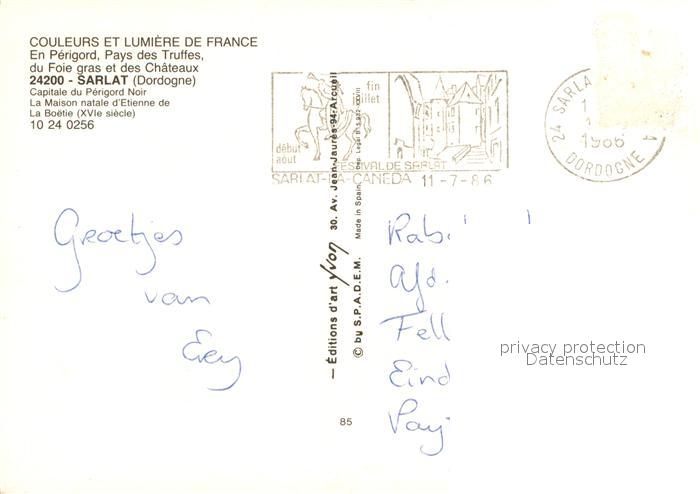 COULEURS ET LUMIÈRE DE FRANCE
En Périgord, Pays des Truffes,
du Foie gras et des Châteaux
24200 - SARLAT (Dordogne)
Capitale du Périgord Noir
La Maison natale d'Etienne de
La Boëtie (XVIe siècle)
10 24 0256
fin
juillet
début
août
FESTIVAL DE SARLAT
SARLAT-LA-CANEDA 11-7-86
24 SARLA
1986
DORDOGNE
Groetjes
van
— Éditions d'art Yvon 30. Av. Jean-Jaurès-94-Arcueil
© by S.P.A.D.E.M. Made in Spain.
Afd.
Fell
Eind
privacy protection
Datenschutz
85